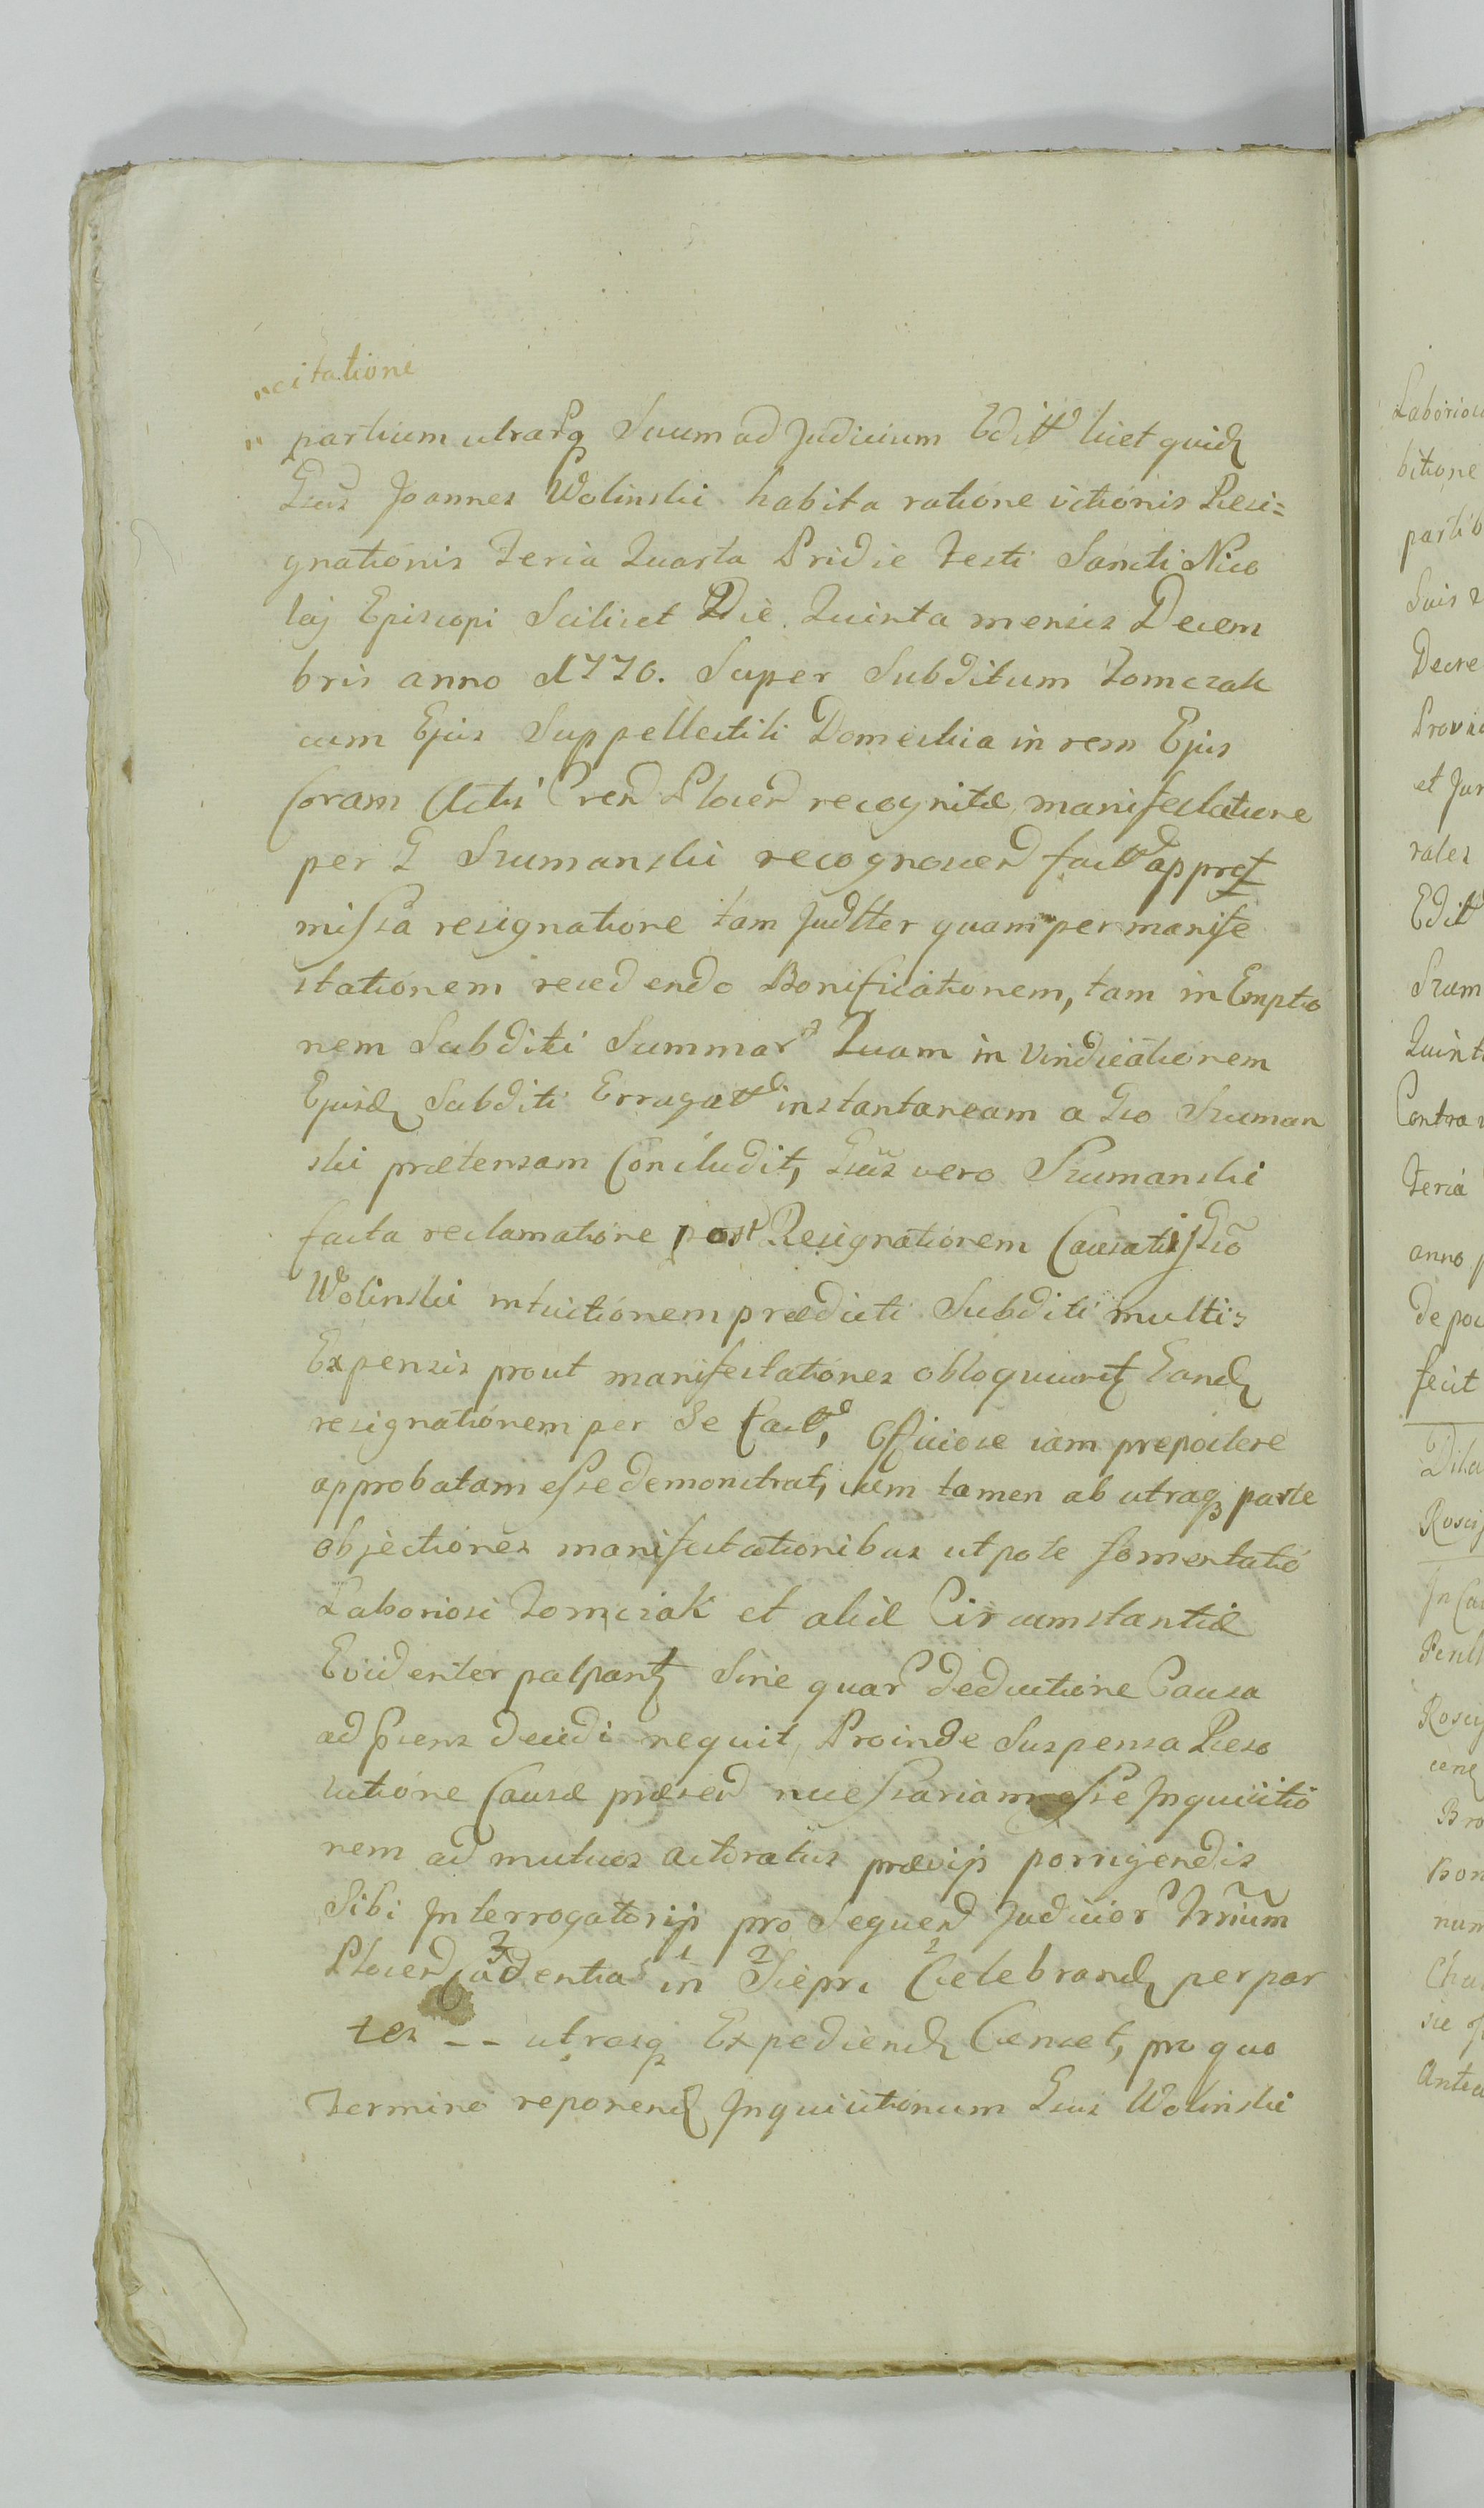 "citatione
" partium utrarq Suum ad Judicium Editt licet quid
Gsus Joannes Wolinski habita ratione victionis Resi=
gnationis Feria Quarta Pridie Festi Sancti Nico
laj Episcopi Scilicet Die Quinta mensis Decem
bris anno 1770. Super Subditum Tomczak
cum Ejus Suppellectili Domestica in rem Ejus
Coram Actis Cren Plocen recognitæ manifestatione
per G Szumanski recognoscen fact appræ
missa resignatione tam Judtter quam per manife
stationem recedendo Bonificationem, tam in Emptio
nem Subditi Summar Quam in Vindicationem
Ejusd Subditi Errogatt instantaneam a Gso Szuman
ski prætensam Concludit, Gsus vero Szumanski
facta reclamatione post Resignationem Causatis Gso
Wolinski intuitionem prædicti Subditi multis
Expensis prout manifestationes obloquunt Eand
resignationem per Se fact, Officiose iam prepostere
approbatam esse demonstrat, cum tamen ab utraq parte
objectiones manifestationibus utpote fomentatio
Laboriosi Tomczak et aliæ Circumstantiæ
Evidenter palpant Sine quar deductione Causa
ad psens decidi nequit, Proinde Suspensa Reso
lutione Causæ præsen necessariam esse Inquisitio
nem ad mutuos actoratus prævijs porrigendis
Sibi Interrogatorijs pro Sequen Judicior Trrium
Plocen Cadentia in Sierpc Celebrand per par
tes -- utrasq Expediend Censet, pro quo
Termino reponend Inquisitionum Gsus Wolinski
Laborios
bitione
partib
Suis
Decre
et Jur
rales
Edit
Szum
Quint
Contra
Feria
anno
de
fecit
Dila
In Cau
Bro
Bon
num